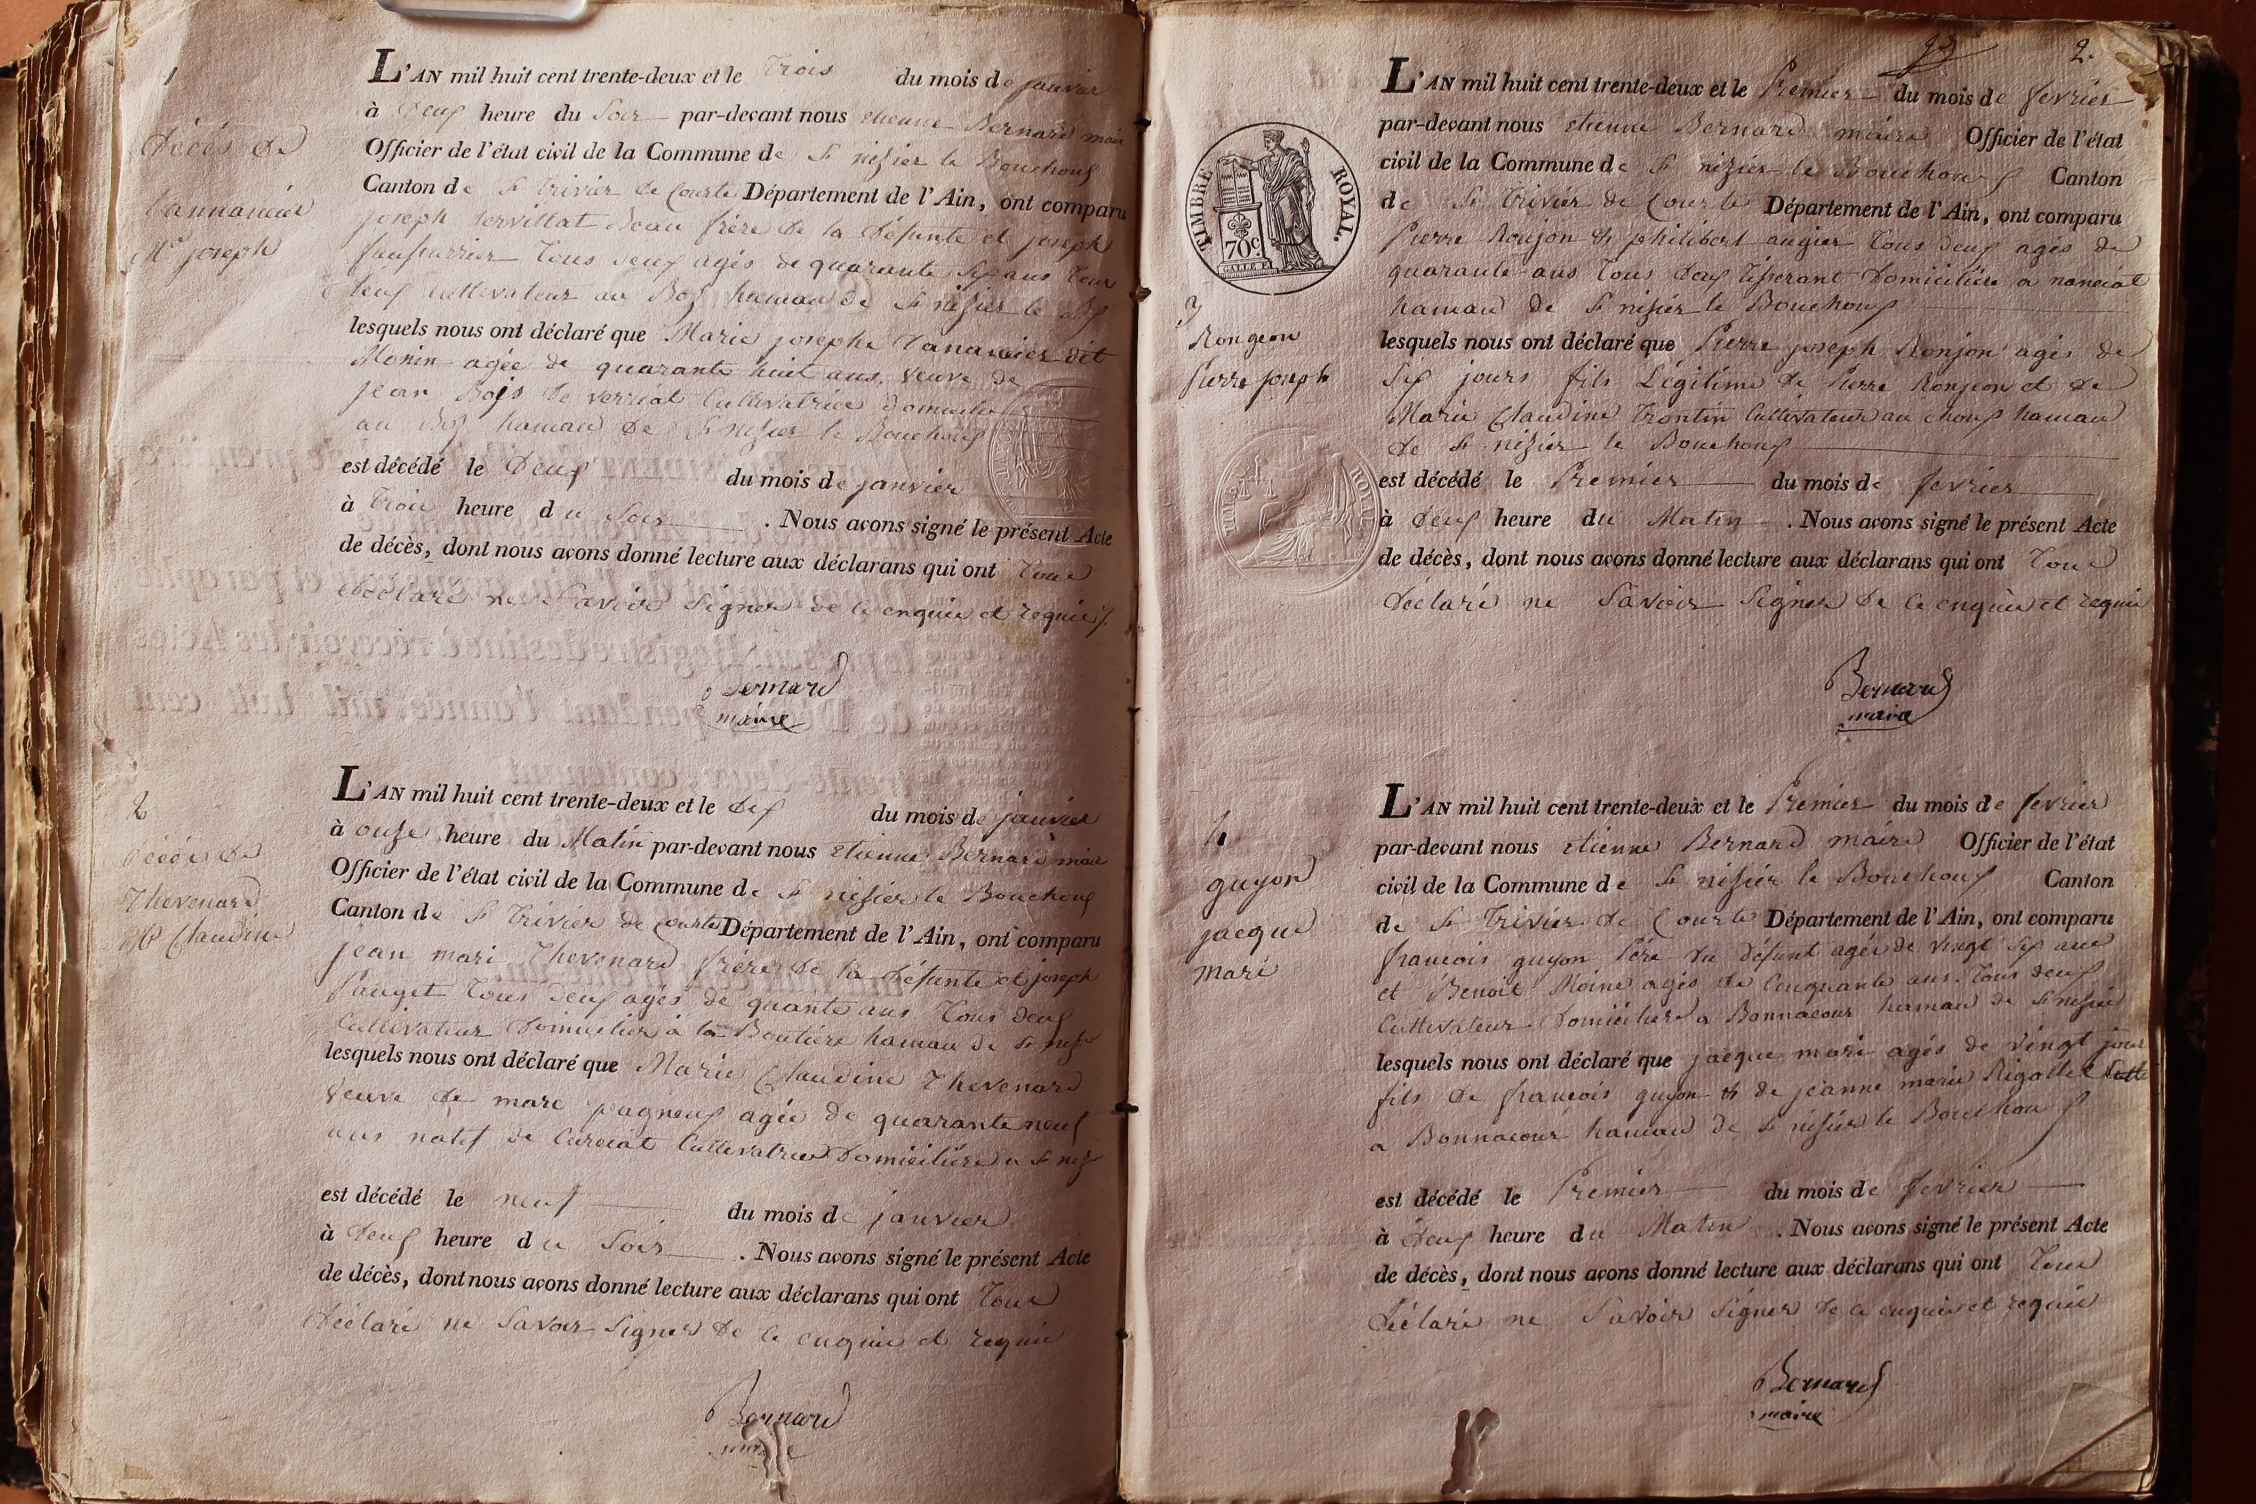 1
Décés de
Vannancier
Mie joseph
L'AN mil huit cent trente-deux et le Trois du mois de janvier
à Deux heure du Soir par-devant nous etienne Bernard maire
Officier de l'état civil de la Commune de St nizier le Bouchoux
Canton de St Trivier de Courte Département de l'Ain, ont comparu
joseph Servillat Beau frère de la Défunte et joseph
Tous deux agés de quarante Six ans Tous
deux Cultivateur au Boz hamau de St nizier le
lesquels nous ont déclaré que Marie josephe Vanancier dit
Monin agée de quarante huit ans, veuve de
jean de verriat Cultivatrice domicilié
au Boz hamau de St nizier le Bouchoux
est décédé le Deux du mois de janvier
à Trois heure du Soir . Nous avons signé le présent Acte
de décès, dont nous avons donné lecture aux déclarans qui ont Tous
déclaré ne Savoir Signer de ce enquie et requie
Bernard
maire
2
Décés de
Thevenard
Mie Claudine
L'AN mil huit cent trente-deux et le Dix du mois de janvier
à onze heure du Matin par-devant nous etienne Bernard maire
Officier de l'état civil de la Commune de St nizier le Bouchoux
Canton de St Trivier de Courte Département de l'Ain, ont comparu
jean mari Thevenard frère de la Défunte et joseph
Pauget Tous deux agés de quante ans Tous deux
Cultivateur Domicilier à la Boutière hamau de St nizier
lesquels nous ont déclaré que Marie Claudine Thevenard
veuve de marc pagneux agée de quarante neuf
ans natif de Curciat Cultivatrice Domicilière a St niz
est décédé le neuf du mois de janvier
à Deux heure du Soir . Nous avons signé le présent Acte
de décès, dont nous avons donné lecture aux déclarans qui ont Tous
Déclaré ne Savoir Signer de ce enquie et requie
Bernard
maire
2.
TIMBRE ROYAL.
70c.
3
Rongeon
pierre joseph
L'AN mil huit cent trente-deux et le Premier du mois de fevrier
par-devant nous etienne Bernard maire Officier de l'état
civil de la Commune de St nizier le Bouchoux Canton
de St Trivier de Courte Département de l'Ain, ont comparu
Pierre Ronjon & philibert augier Tous deux agés de
quarante ans Tous deux Tisserant Domicilière a nanciat
hamau de St nizier le Bouchoux
lesquels nous ont déclaré que Pierre joseph Ronjon agés de
Six jours fils Légitime de Pierre Ronjeon et de
Marie Claudine Trontin Cultivateur au choux hamau
de St nizier le Bouchoux
est décédé le Premier du mois de fevrier
à Deux heure du Matin . Nous avons signé le présent Acte
de décès, dont nous avons donné lecture aux déclarans qui ont Tous
Déclaré ne Savoir Signer de ce enquie et requie
Bernard
maire
4
guyon
jacque
mari
L'AN mil huit cent trente-deux et le Premier du mois de fevrier
par-devant nous etienne Bernard maire Officier de l'état
civil de la Commune de St nizier le Bouchoux Canton
de St Trivier de Courte Département de l'Ain, ont comparu
francois guyon Père du Défunt agés de vingt Six ans
et Benoit Moine agés de Cenquante ans. Tous deux
Cultivateur Domicilier a Bonnacour hamau de St nizier
lesquels nous ont déclaré que jacque mari agés de vingt jour
fils de francois guyon & de jeanne marie Rigollet
a Bonnacour hamau de St nizier le Bouchoux
est décédé le Premier du mois de fevrier
à Deux heure du Matin . Nous avons signé le présent Acte
de décès, dont nous avons donné lecture aux déclarans qui ont Tous
Déclaré ne Savoir Signer de ce enquie et requie
Bernard
maire